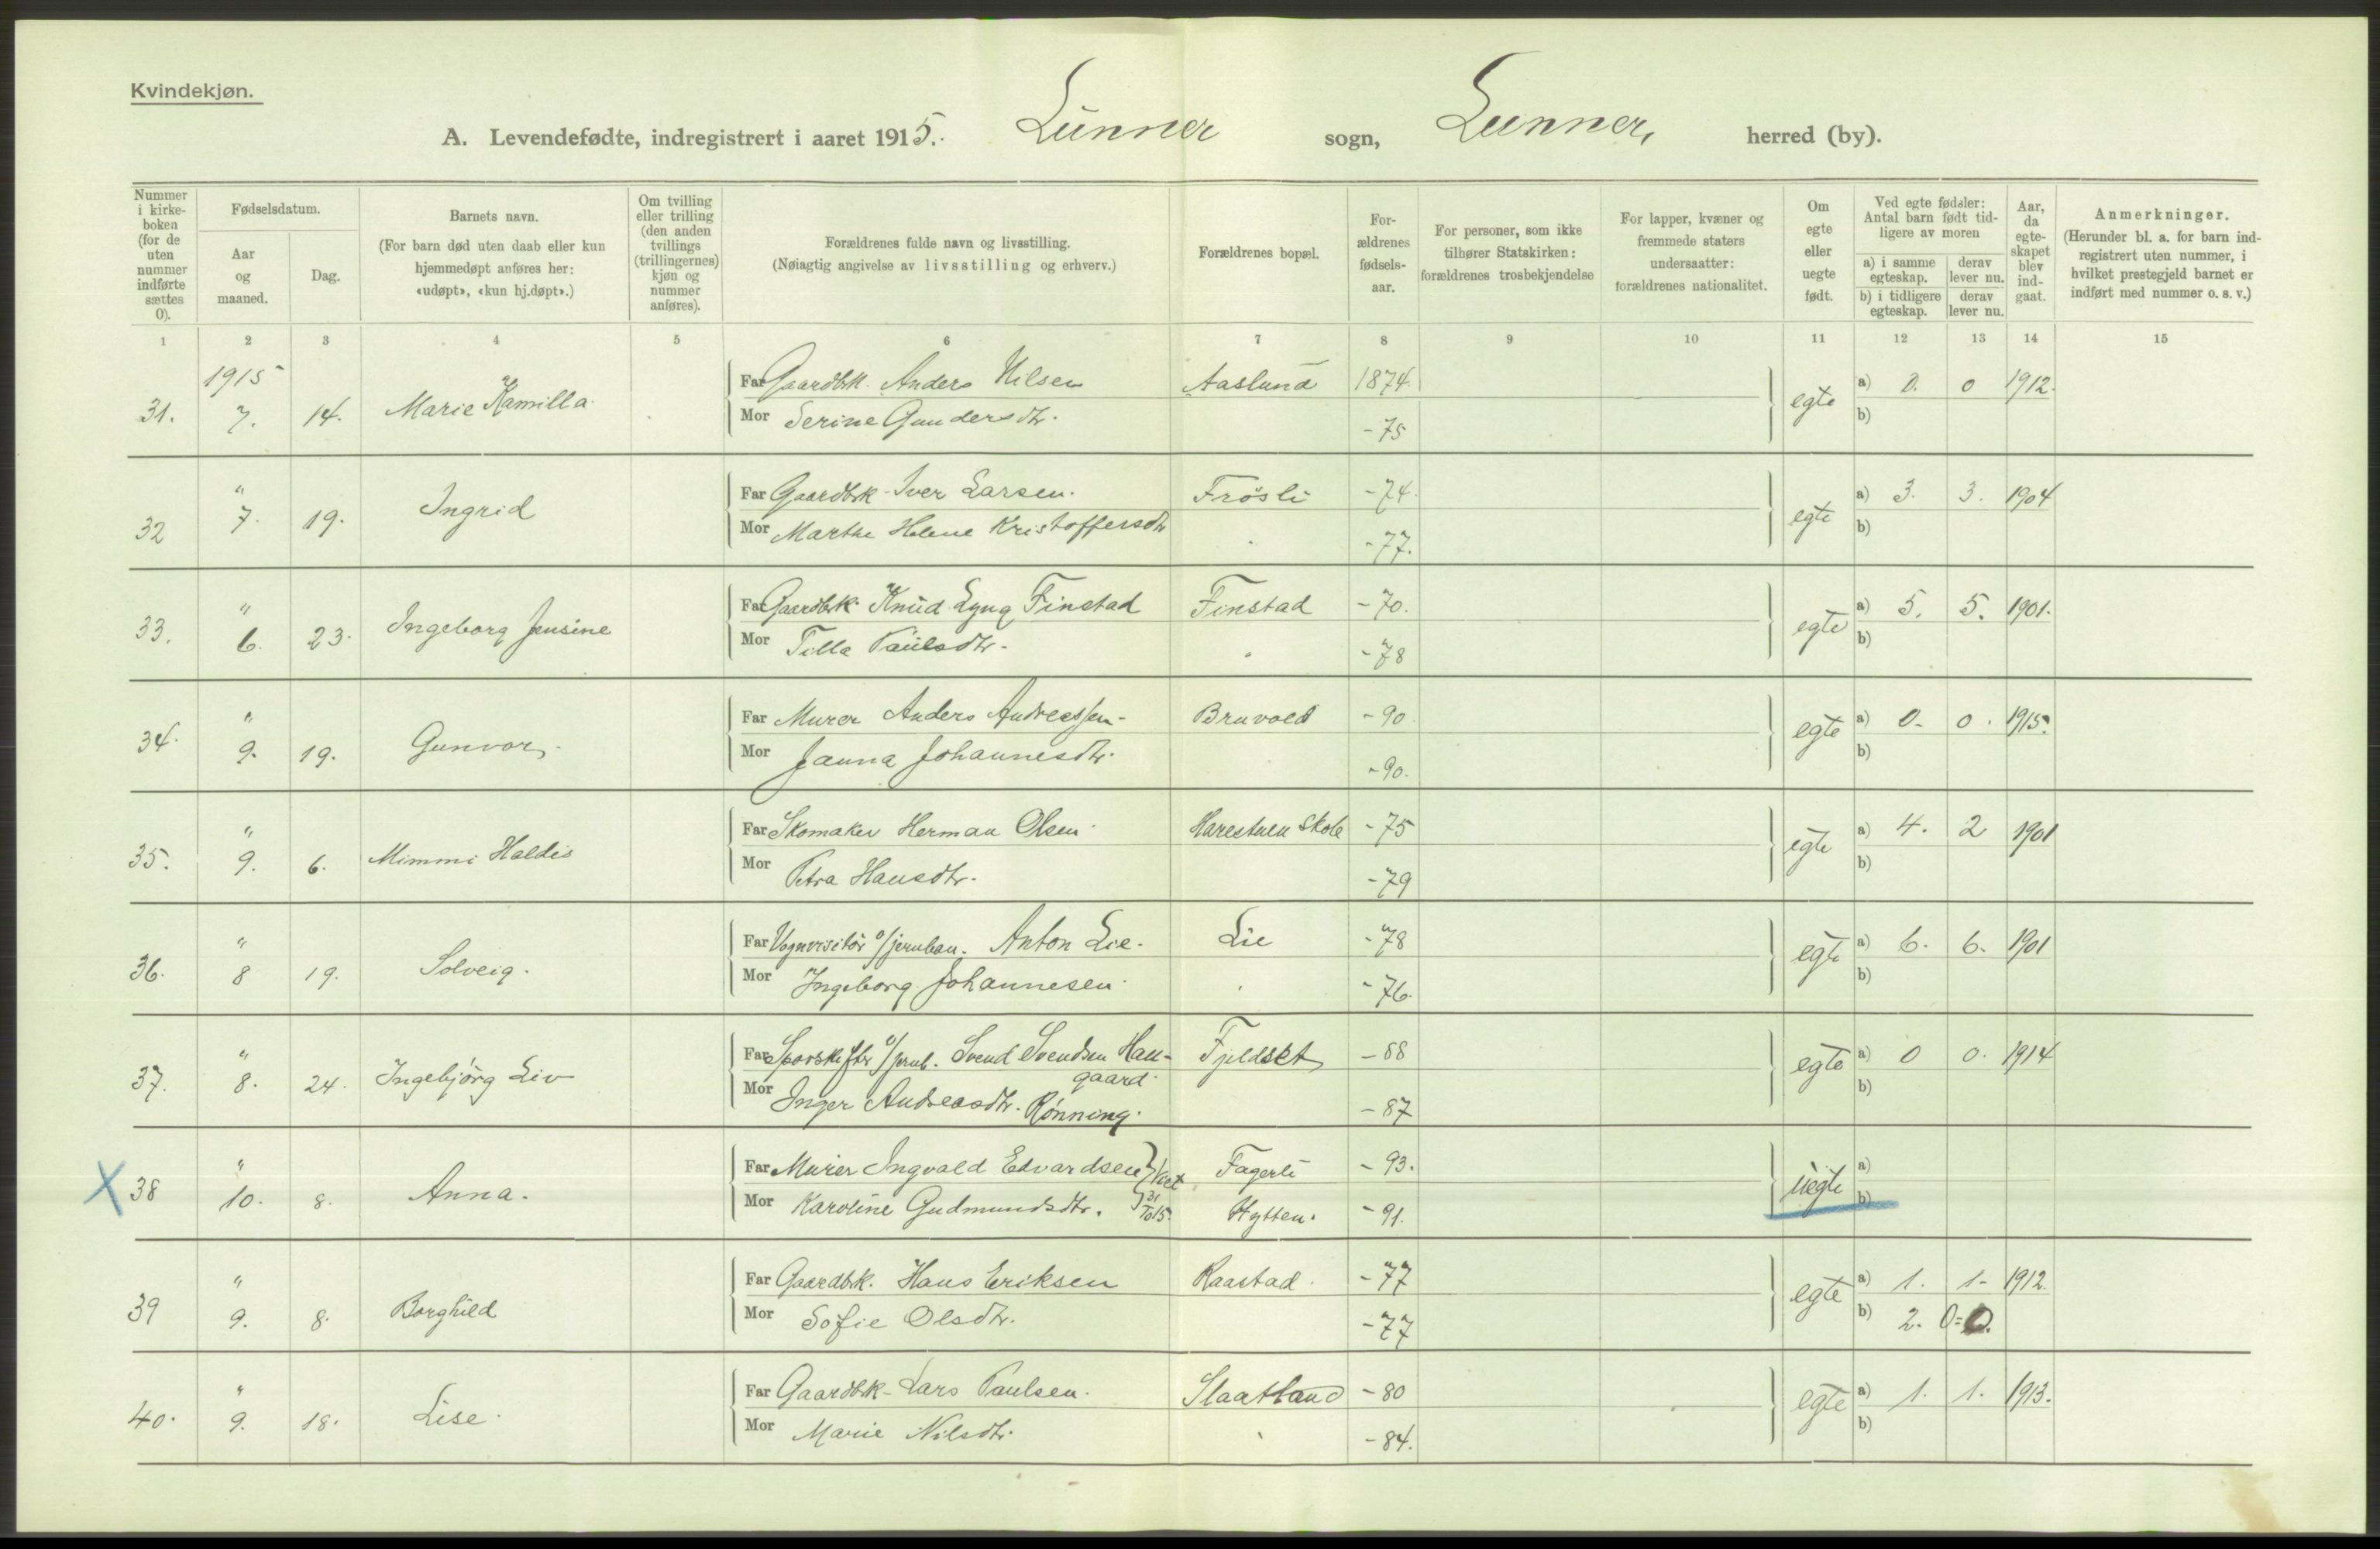 Kvindekjøn.
A. Levendefødte, indregistrert i aaret 1915. Lunner sogn, Lunner, herred (by).
Nummer i kirke- boken (for de uten nummer indførte sættes 0).
Fødselsdatum.
Aar og maaned.
Dag.
Barnets navn.
(For barn død uten daab eller kun hjemmedøpt anføres her: «udøpt», «kun hj.døpt».)
Om tvilling eller trilling (den anden tvillings (trillingernes) kjøn og nummer anføres).
Forældrenes fulde navn og livsstilling.
(Nøiagtig angivelse av livsstilling og erhverv.)
Forældrenes bopæl.
For- ældrenes fødsels- aar.
For personer, som ikke tilhører Statskirken: forældrenes trosbekjendelse
For lapper, kvæner og fremmede staters undersaatter: forældrenes nationalitet.
Om egte eller uegte født.
Ved egte fødsler: Antal barn født tid- ligere av moren
a) i samme egteskap. derav lever nu.
b) i tidligere egteskap. derav lever nu.
Aar, da egte- skapet blev ind- gaat.
Anmerkninger.
(Herunder bl. a. for barn ind- registrert uten nummer, i hvilket prestegjeld barnet er indført med nummer o. s. v.)
1 2 3 4 5 6 7 8 9 10 11 12 13 14 15
31. 1915 7. 14. Marie Kamilla. Far Gaardbk. Anders Nilsen Aaslund 1874. egte a) 0. 0 1912.
Mor Serine Gundersdtr. -75 b)
32 " 7. 19. Ingrid Far Gaardbrk. Iver Larsen. Frösli -74. egte a) 3. 3. 1904
Mor Marthe Helene Kristoffersdtr -77. b)
33. " 6. 23. Ingeborg Jensine Far Gaardbrk. Knud Lyng Finstad Finstad -70. egte a) 5. 5. 1901.
Mor Tilla Paulsdtr. -78 b)
34. " 9. 19. Gunvor. Far Murer Anders Andreassen- Bruvold -90. egte a) 0- 0. 1915.
Mor Janna Johannesdtr. -90. b)
35. " 9. 6. Mimmi Haldis Far Skomaker Herman Olsen Harestuen skole -75 egte a) 4. 2 1901
Mor Petra Hansdtr. -79 b)
36. " 8 19. Solveig. Far Vognvisitör v/jernban. Anton Lie. Lie -78 egte a) 6. 6. 1901
Mor Ingeborg Johannesen -76. b)
37. " 8. 24. Ingebjörg Liv Far v/jernb. Svend Svendsen Hau- Fjeldset -88 egte a) 0 0. 1914
gaard.
Mor Inger Andreasdtr. Rønning. -87 b)
X 38 " 10. 8. Anna. Far Murer Ingvald Edvardsen Fagerli -93. uegte a)
Mor Karoline Gudmundsdtr. 31/10 15. Hytten. -91. b)
39 " 9. 8. Borghild Far Gaardbk. Hans Eriksen Raastad. -77 egte a) 1. 1- 1912.
Mor Sofie Olsdtr. -77 b) 2. 0=0.
40. " 9. 18. Lise. Far Gaardbk- Lars Paulsen. Slaatland -80 egte a) 1. 1. 1913.
Mor Marie Nilsdtr. -84. b)